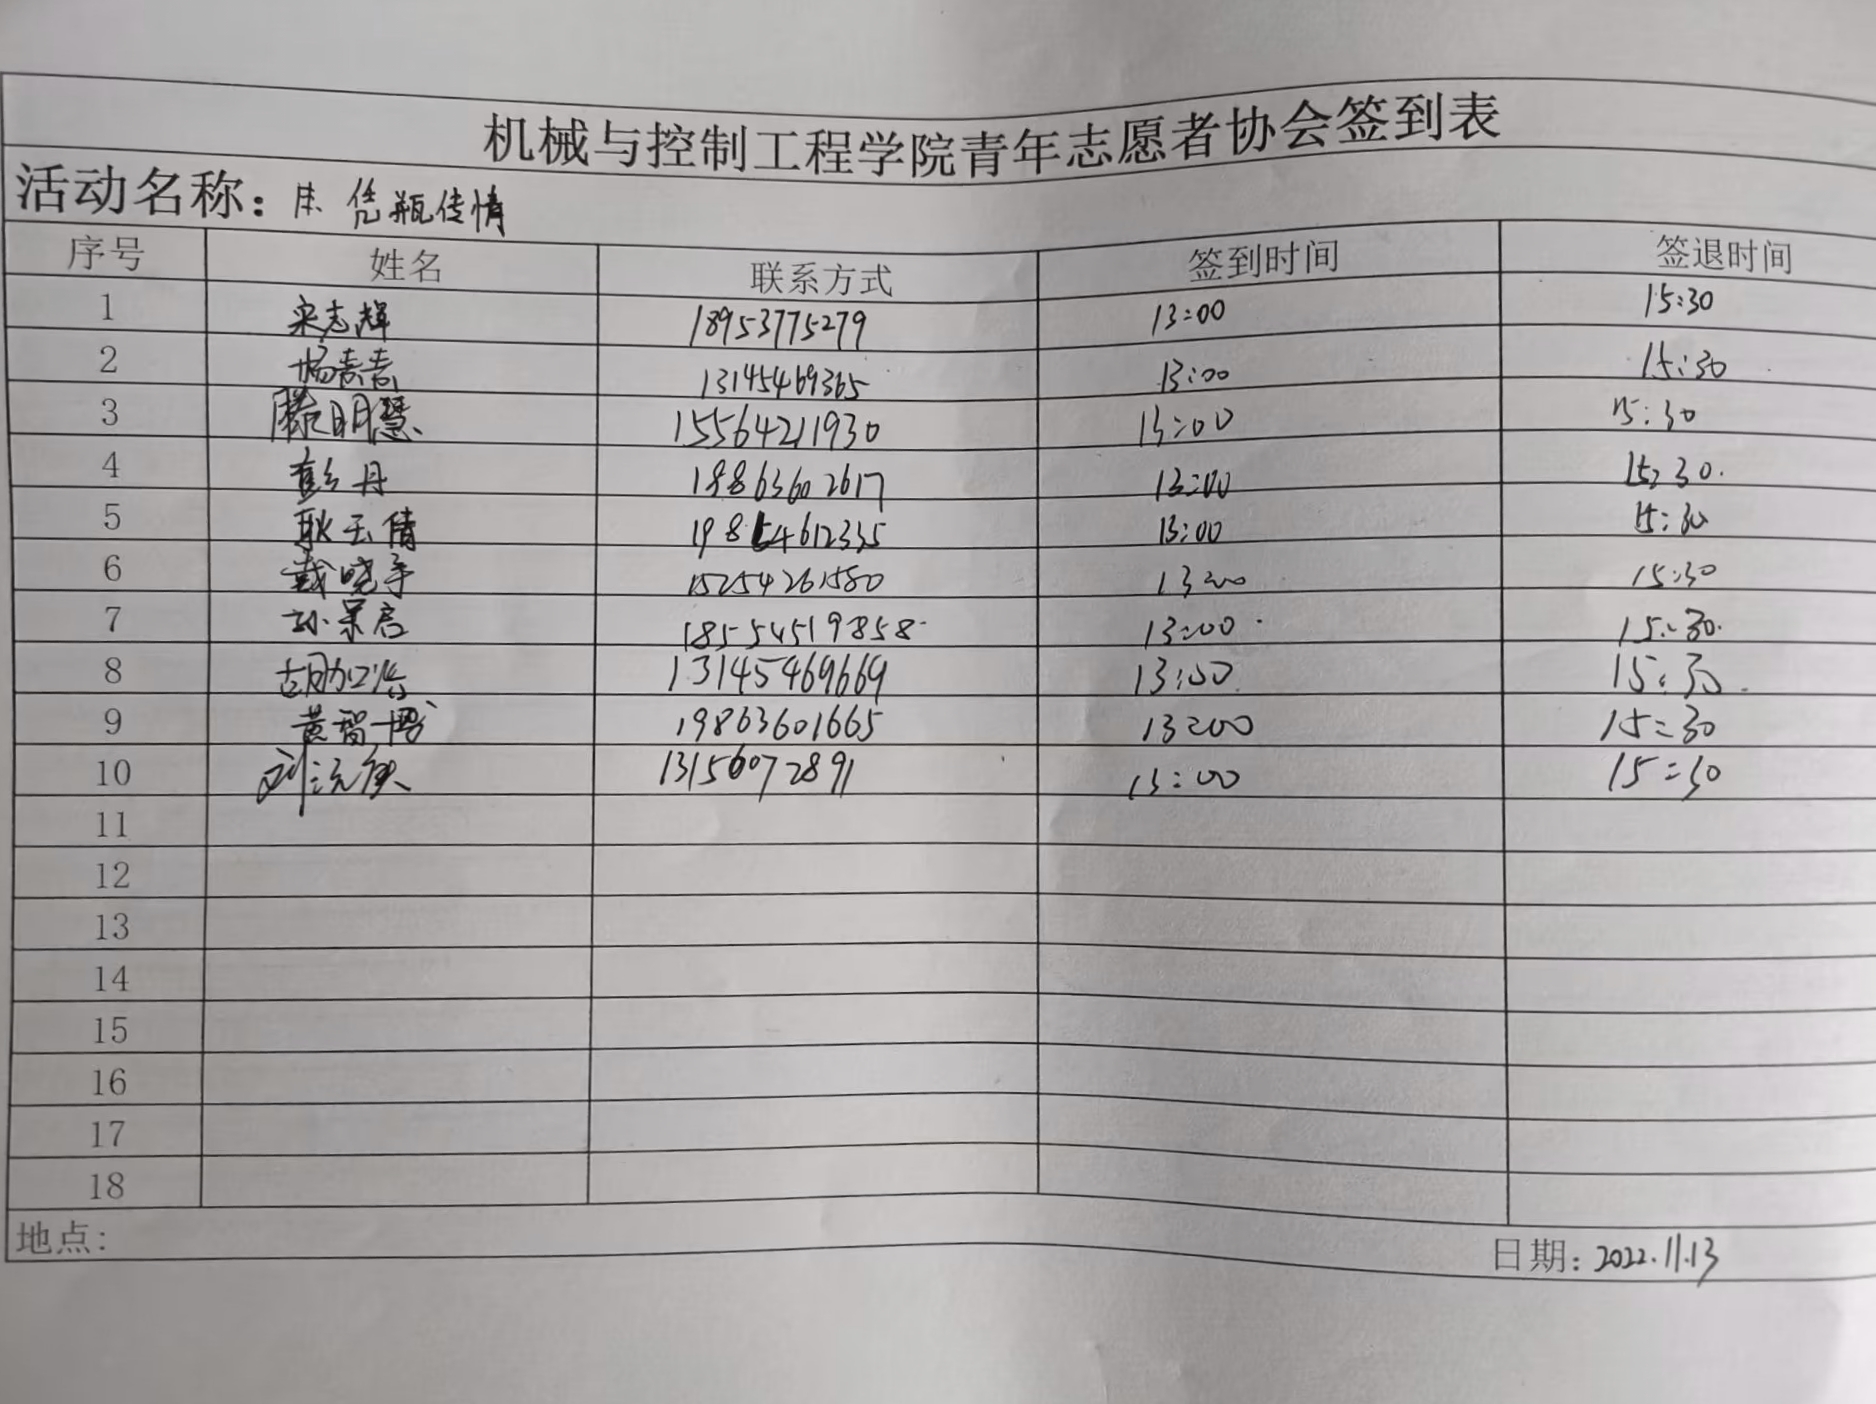 机械与控制工程学院青年志愿者协会签到表
活动名称：凭瓶传情
序号 姓名 联系方式 签到时间 签退时间
1 宋志辉 18953775279 13:00 15:30
2 杨青青 13145469365 13:00 15:30
3 滕明慧 15564211930 13:00 15:30
4 彭丹 19863602617 13:00 15:30
5 耿玉倩 19854612335 13:00 15:30
6 戴晓 15254261580 13:00 15:30
7 孙景启 18554519858 13:00 15:30
8 胡加 13145469669 13:00 15:30
9 黄智博 19863601665 13:00 15:30
10 刘 13156072891 13:00 15:30
11
12
13
14
15
16
17
18
地点： 日期：2022.11.13